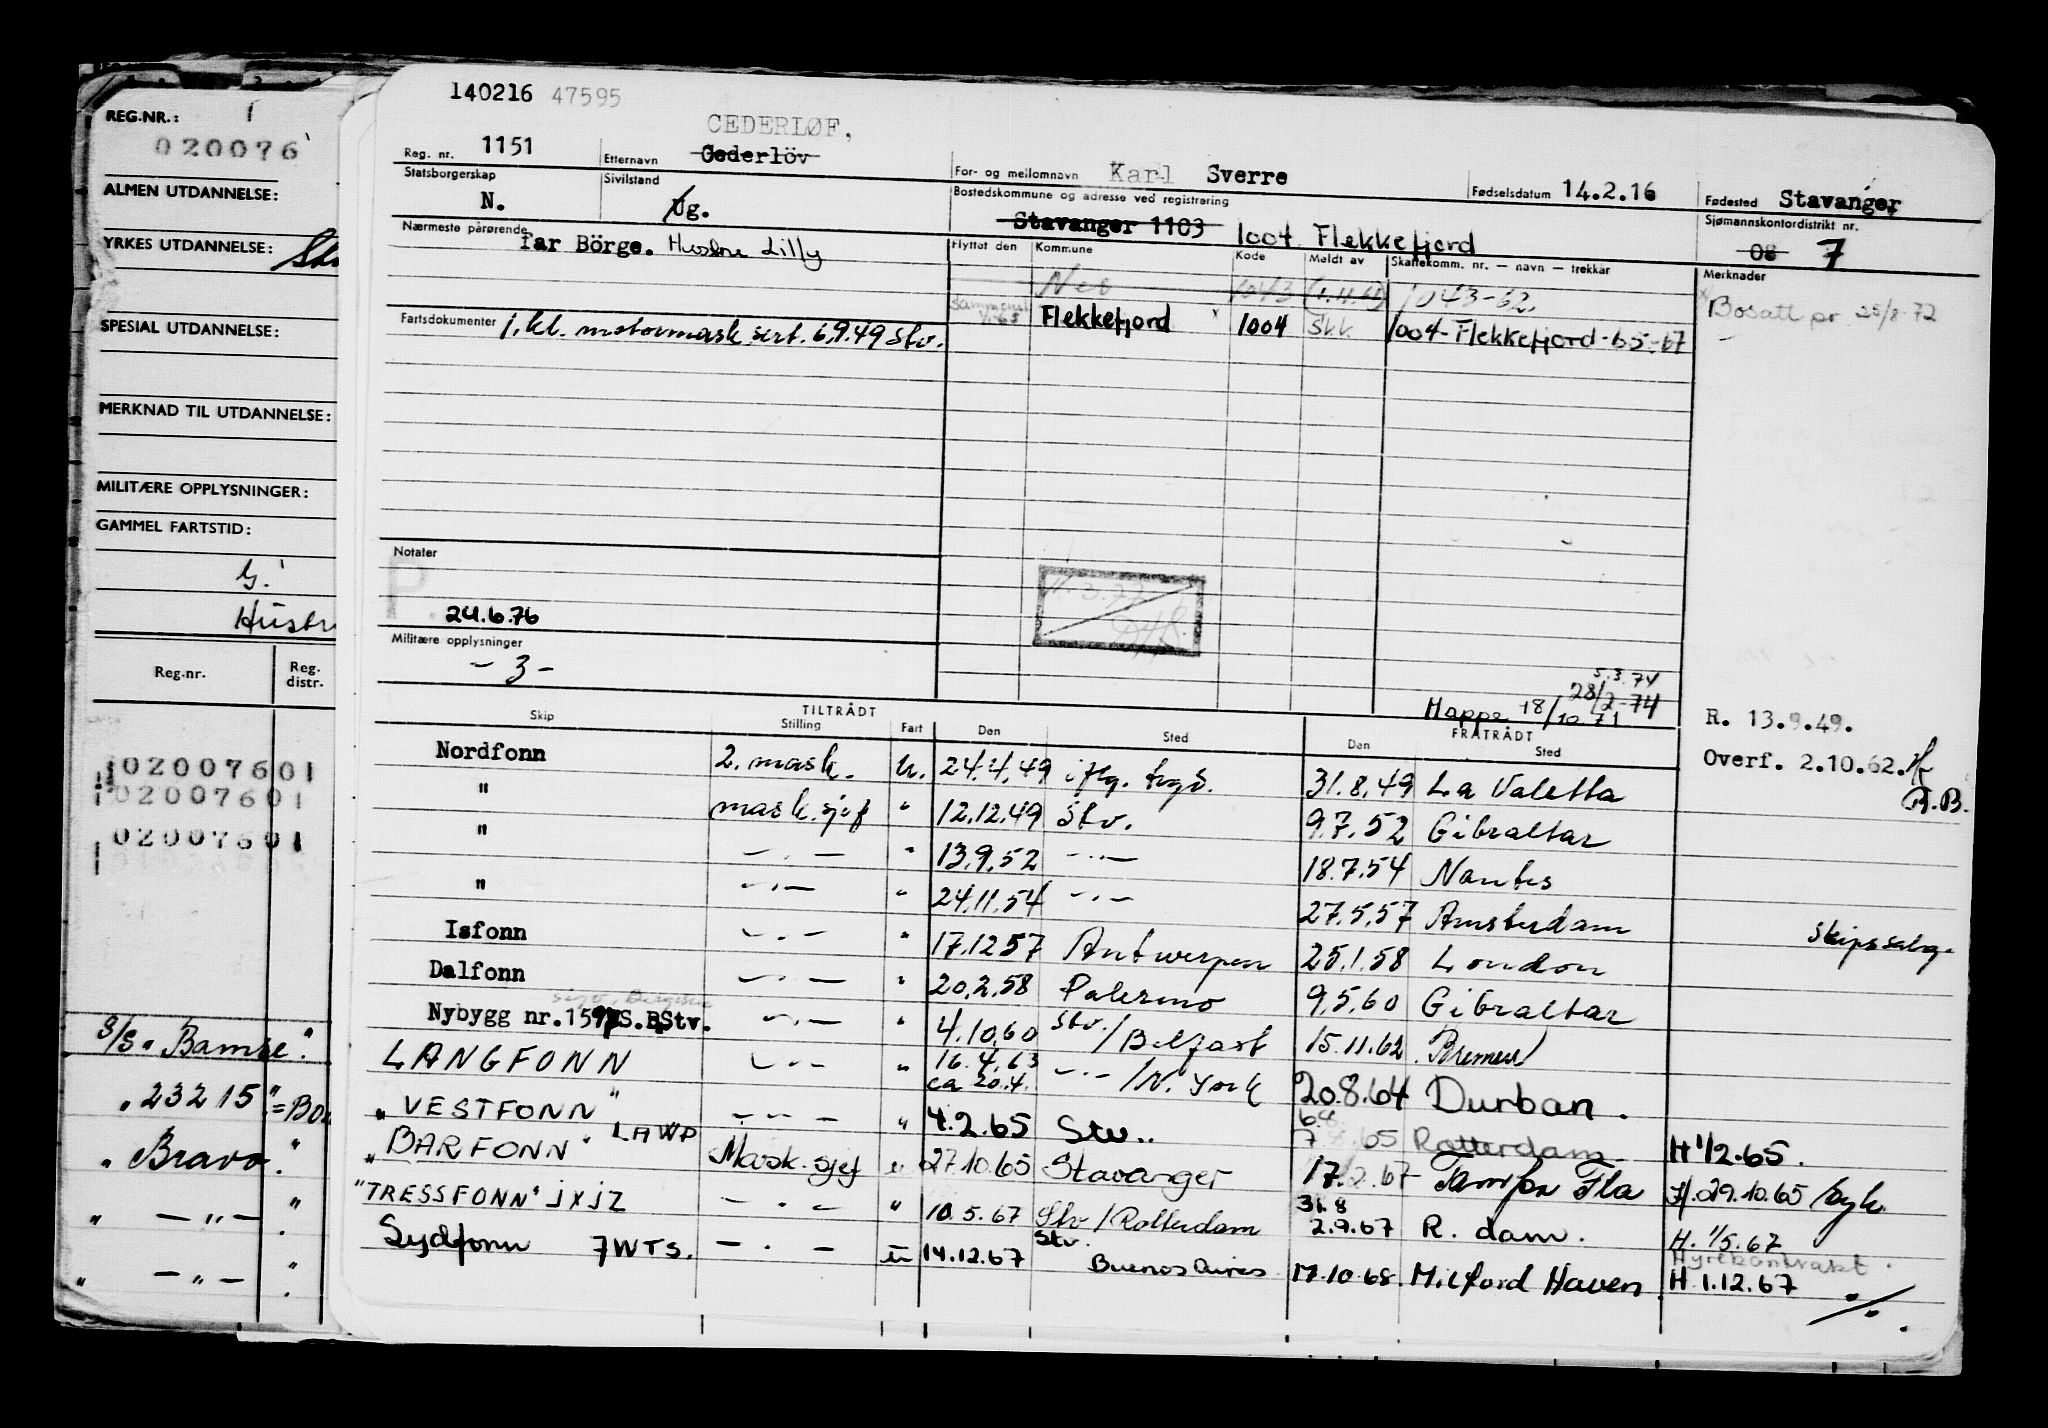 REG.NR.: 1
020076
ALMEN UTDANNELSE:
YRKES UTDANNELSE:
SPESIAL UTDANNELSE:
MERKNAD TIL UTDANNELSE:
MILITÆRE OPPLYSNINGER:
GAMMEL FARTSTID:
G.
Reg.nr. Reg. distr.
02007601
02007601
02007601
S/S "Bamse".
" 23215" = Bo
" Bravo"
" — " — "
" — " — "
140216 47595
CEDERLØF,
Reg. nr. 1151 Etternavn Cederlöv For- og mellomnavn Karl Sverre Fødselsdatum 14.2.16 Fødested Stavanger
Statsborgerskap N. Sivilstand Ug. Bostedskommune og adresse ved registrering Stavanger 1103 1004 Flekkefjord Sjømannskontordistrikt nr. 08 7
Nærmeste pårørende far Börge. Hustru Lilly
Flyttet den Kommune Kode Meldt av Skattekomm. nr. — navn — trekkår Merknader
1043 1043-62.
Bosatt pr 25/8-72
Fartsdokumenter 1.kl. motormask.sert. 6.9.49 Stv.
Flekkefjord 1004 Sk.k. 1004-Flekkefjord-65-67
Notater
P.
24.6.76
Militære opplysninger
- 3 -
5.3.74
28/2-74
Mappe 18/10 71
R. 13.9.49.
Overf. 2.10.62.
R.B.
TILTRÅDT FRATRÅDT
Skip Stilling Fart Den Sted Den Sted
Nordfonn 2. mask. U. 24.4.49 iflg. 31.8.49 La Valetta
" mask.sjef " 12.12.49 Stv. 9.7.52 Gibraltar
" — . — " 13.9.52 — " — 18.7.54 Nantes
" — " — " 24.11.54 — " — 27.5.57 Amsterdam Skipssalg.
Isfonn — . — " 17.12 57 Antwerpen 25.1.58 London
Dalfonn — . — " 20.2.58 Palermo 9.5.60 Gibraltar
Nybygg nr. Stv. — . — " 4.10.60 Stv./Belfast 15.11.62 Bremen
LANGFONN — . — " 16.4.63 ca 20.4. — " — /N. York 20.8.64 Durban.
" VESTFONN " — . — " 4.2.65 Stv.. Rotterdam H 1/2.65.
" BARFONN " LAWP Mask.sjef u 27.10.65 Stavanger 17.2.67 Fla H. 29.10.65
"TRESSFONN" JXJZ — . — " 10.5.67 Stv/Rotterdam 31.8 2.9.67 R. dam. H. 1/5.67
Hyrekontrakt
Sydfonn 7WTS. — . — u 14.12.67 Stv. Buenos Aires 17.10.68 Milford Haven H 1.12.67